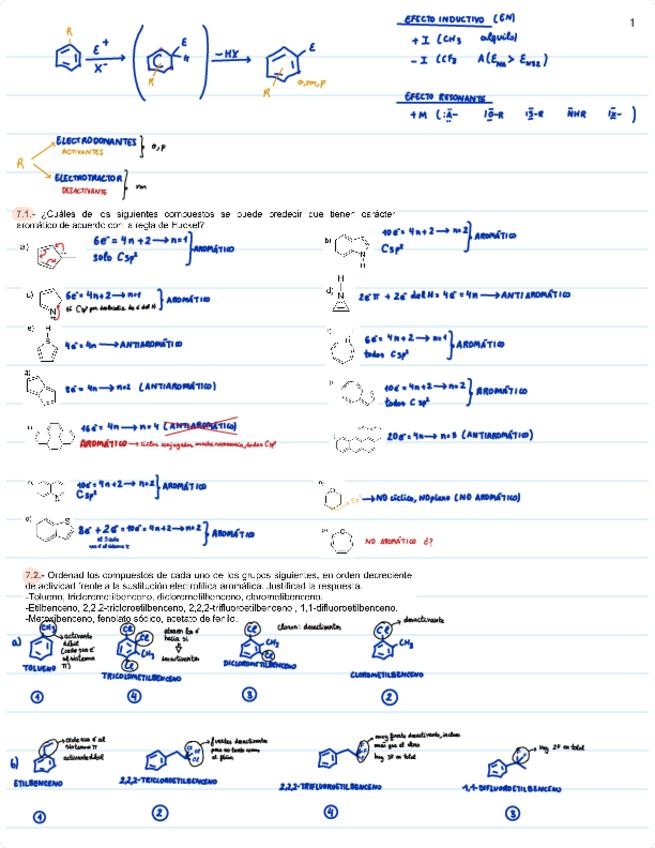 1
EFECTO INDUCTIVO (EN)
+I (CH3 alquilo)
-I (CF3
R E+ X- E H R -HX E R o,m,p
EFECTO RESONANTE
+M
NHR
ELECTRODONANTES } o,p
ACTIVANTES
R
ELECTROTRACTOR } m
DESACTIVANTE
7.1.- ¿Cuáles de los siguientes compuestos se puede predecir que tienen carácter
aromático de acuerdo con la regla de Hückel?
a) 6e- = 4n+2 → n=1 } AROMÁTICO
solo Csp²
b) 10e- = 4n+2 → n=2 } AROMÁTICO
Csp²
N
H
c) 6e- = 4n+2 → n=1 } AROMÁTICO
N
d) H N 2e- π + 2e- del N = 4e- = 4n → ANTIAROMÁTICO
e) H 4e- = 4n → ANTIAROMÁTICO
6e- = 4n+2 → n=1 } AROMÁTICO
todos Csp²
8e- = 4n → n=2 (ANTIAROMÁTICO)
10e- = 4n+2 → n=2 } AROMÁTICO
todos Csp²
16e- = 4n → n=4 (ANTIAROMÁTICO)
AROMÁTICO → ciclos conjugados, mucha resonancia, todos Csp²
20e- = 4n → n=5 (ANTIAROMÁTICO)
10e- = 4n+2 → n=2 } AROMÁTICO
Csp²
→ NO cíclico, NO plano (NO AROMÁTICO)
8e- + 2e- = 10e- = 4n+2 → n=2 } AROMÁTICO
NO AROMÁTICO ¿?
7.2.- Ordenad los compuestos de cada uno de los grupos siguientes, en orden decreciente
de actividad frente a la sustitución electrofílica aromática. Justificad la respuesta.
-Tolueno, triclorometilbenceno, diclorometilbenceno, clorometilbenceno.
-Etilbenceno, 2,2,2-tricloroetilbenceno, 2,2,2-trifluoroetilbenceno, 1,1-difluoroetilbenceno.
-Metoxibenceno, fenolato sódico, acetato de fenilo.
a) CH3 activante débil (cede sus e- al sistema π)
TOLUENO
1
Cl Cl CH3 Cl atraen los e- hacia sí
desactivantes
TRICLOROMETILBENCENO
4
Cl Cloros: desactivantes
CH3
Cl
DICLOROMETILBENCENO
3
Cl desactivante
CH3
CLOROMETILBENCENO
2
b) cede sus e- al sistema π
activante débil
ETILBENCENO
1
Cl Cl Cl fuertes desactivantes
pero no tanto como el flúor
2,2,2-TRICLOROETILBENCENO
2
muy fuerte desactivante, incluso
más que el cloro
hay 3F en total
2,2,2-TRIFLUOROETILBENCENO
4
F F hay 2F en total
1,1-DIFLUOROETILBENCENO
3